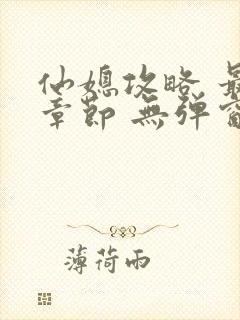 仙媳攻略 最
章節 無彈窗
薄荷雨